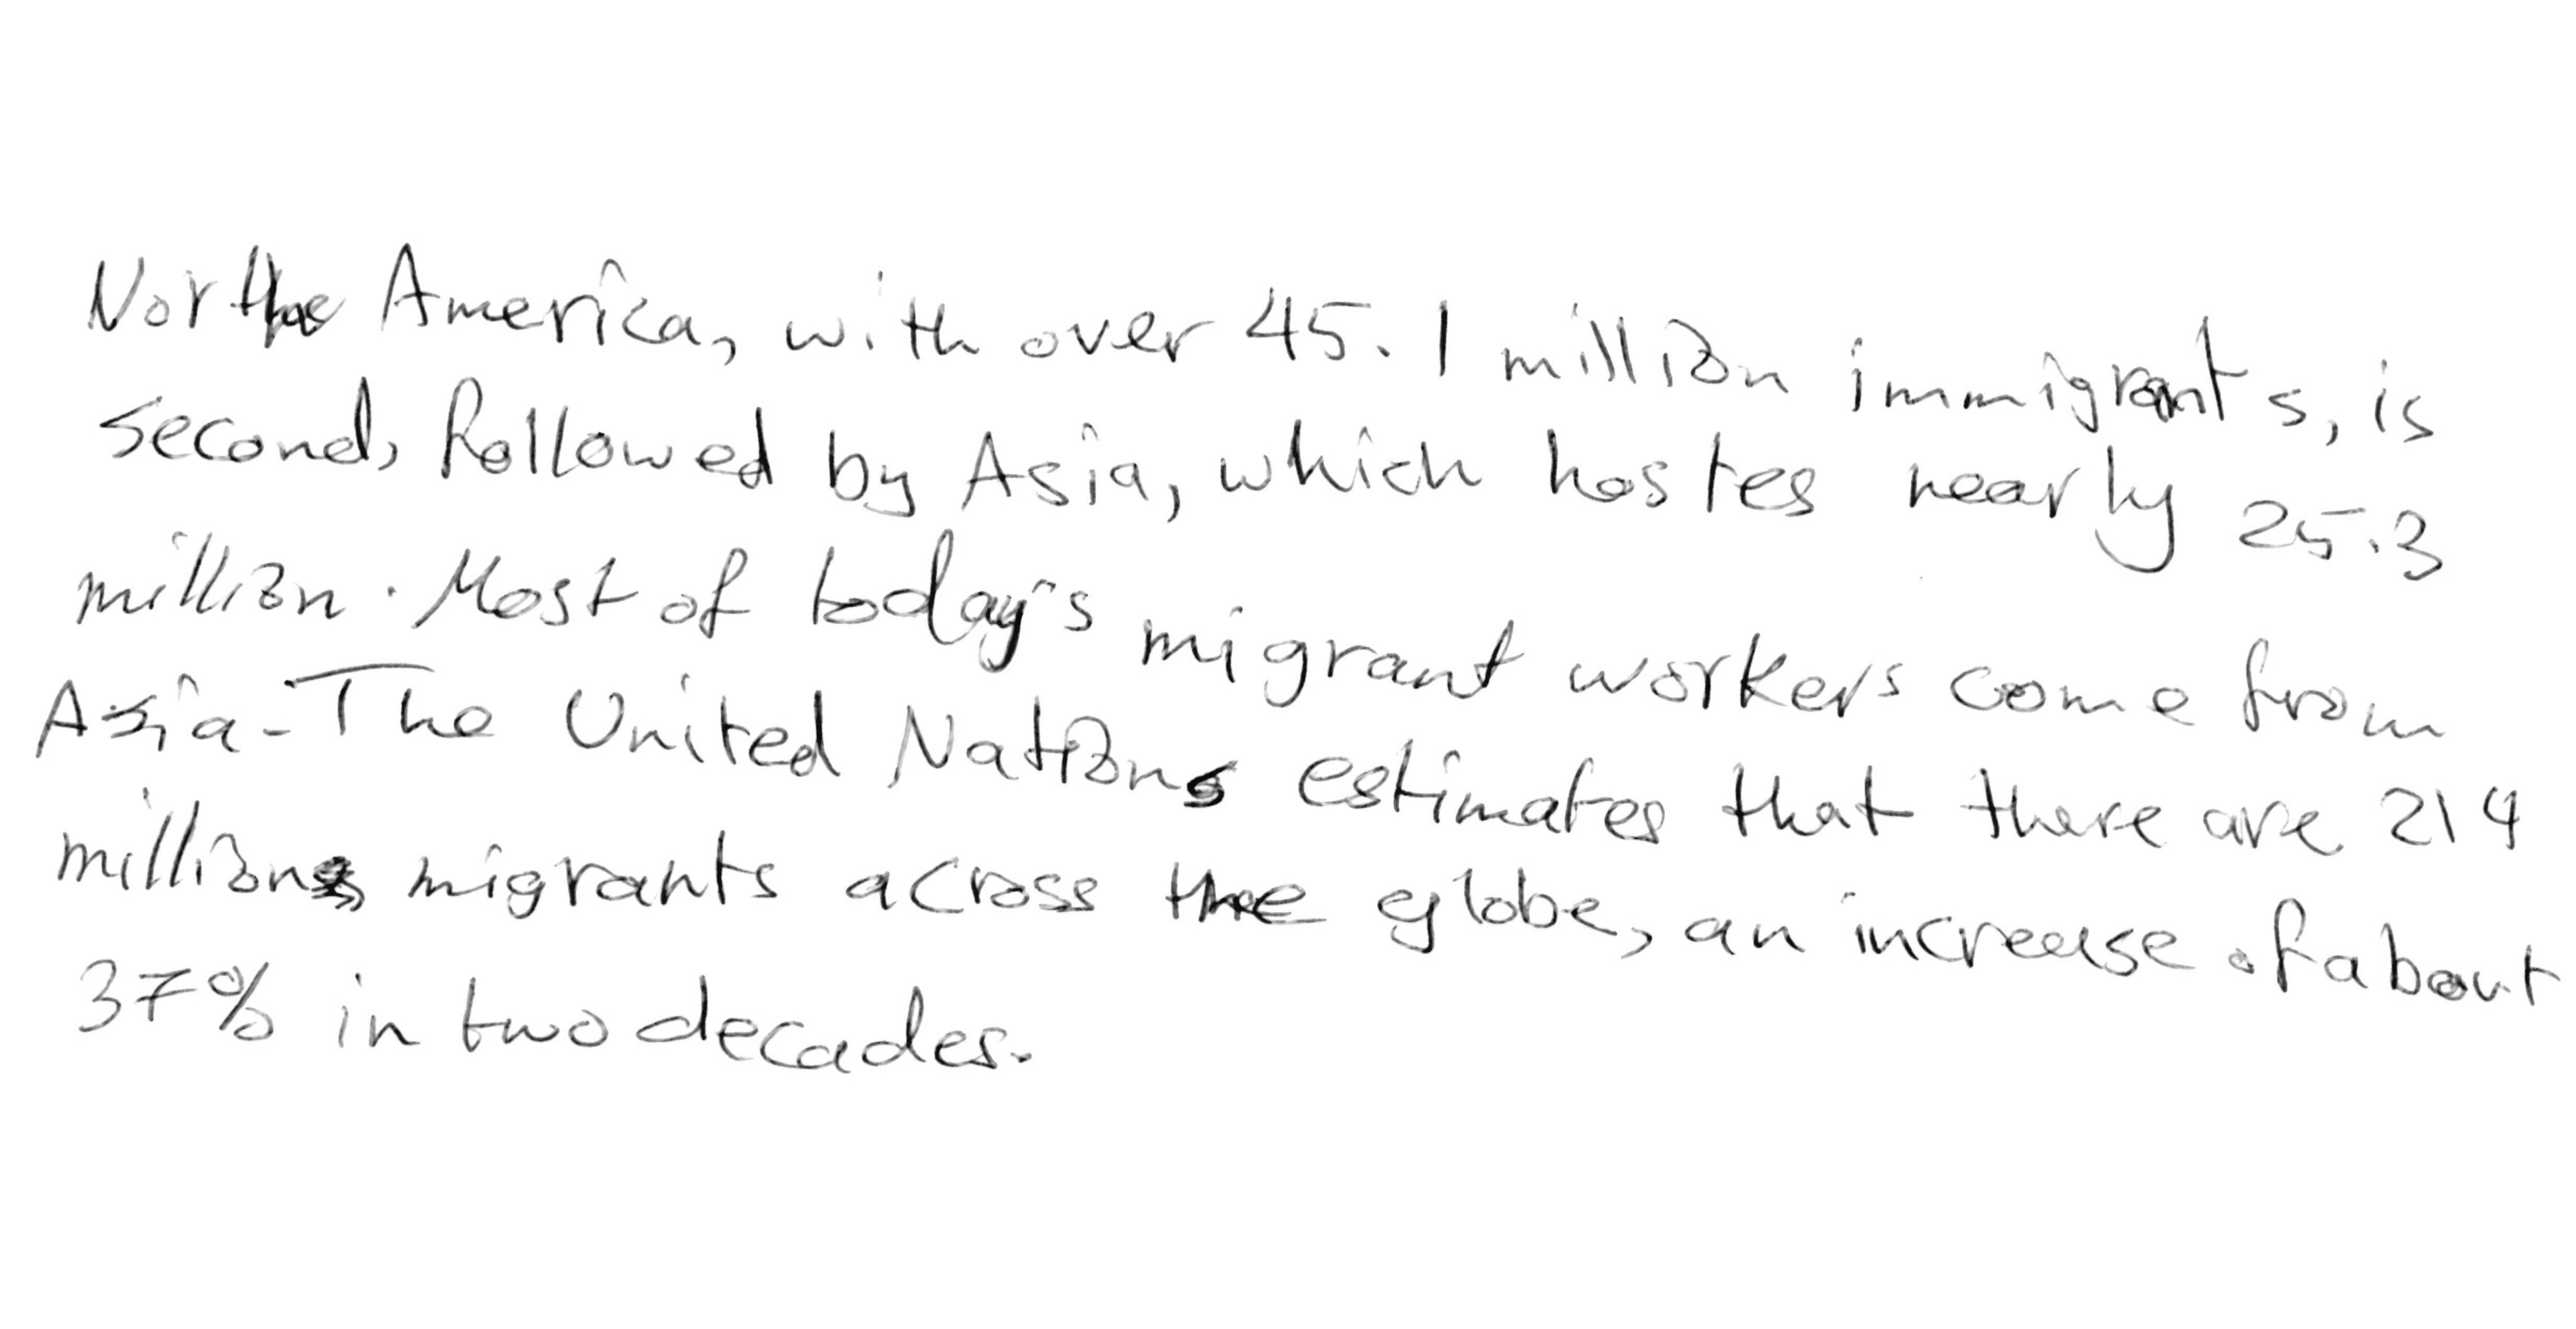 Northe America, with over 45.1 million immigrants, is
second, followed by Asia, which hostes nearly 25.3
million. Most of today's migrant workers come from
Asia. The United Nations estimates that there are 214
millions migrants across the globe, an increase of about
37% in two decades.